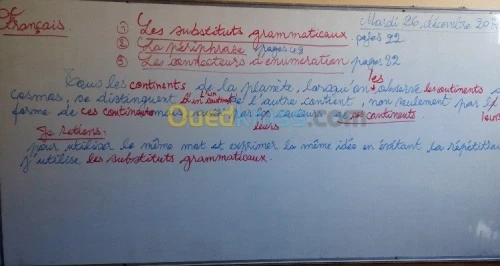 Français
Mardi 26 décembre
① Les substituts grammaticaux. pages 22
② La périphrase pages 49
③ Les connecteurs d'énumération pages 32
Tous les continents de la planète, lorsqu'on observe les continents
les
cosmos, se distinguent l'un de l'autre continent, non seulement par
forme de ces continents mais aussi par les couleurs de ces continents
leurs
leurs
Je retiens:
pour utiliser le même mot et exprimer la même idée en évitant la répétition
j'utilise les substituts grammaticaux.
Ouedkniss.com